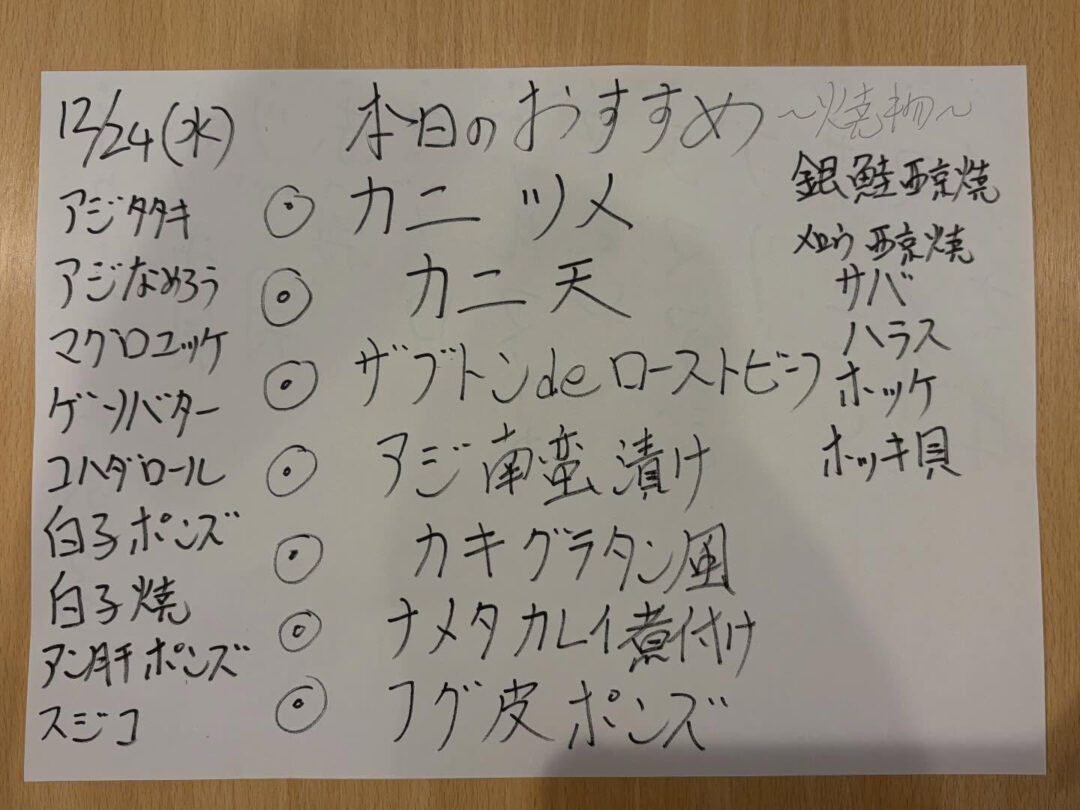 12/24(水)
本日のおすすめ
アジタタキ
アジなめろう
マグロユッケ
ゲソバター
コハダロール
白子ポンズ
白子焼
アン肝ポンズ
スジコ
◎ カニツメ
◎ カニ天
◎ ザブトンdeローストビーフ
◎ アジ南蛮漬け
◎ カキグラタン風
◎ ナメタカレイ煮付け
◎ フグ皮ポンズ
〜焼物〜
銀鮭西京焼
メロウ西京焼
サバ
ハラス
ホッケ
ホッキ貝